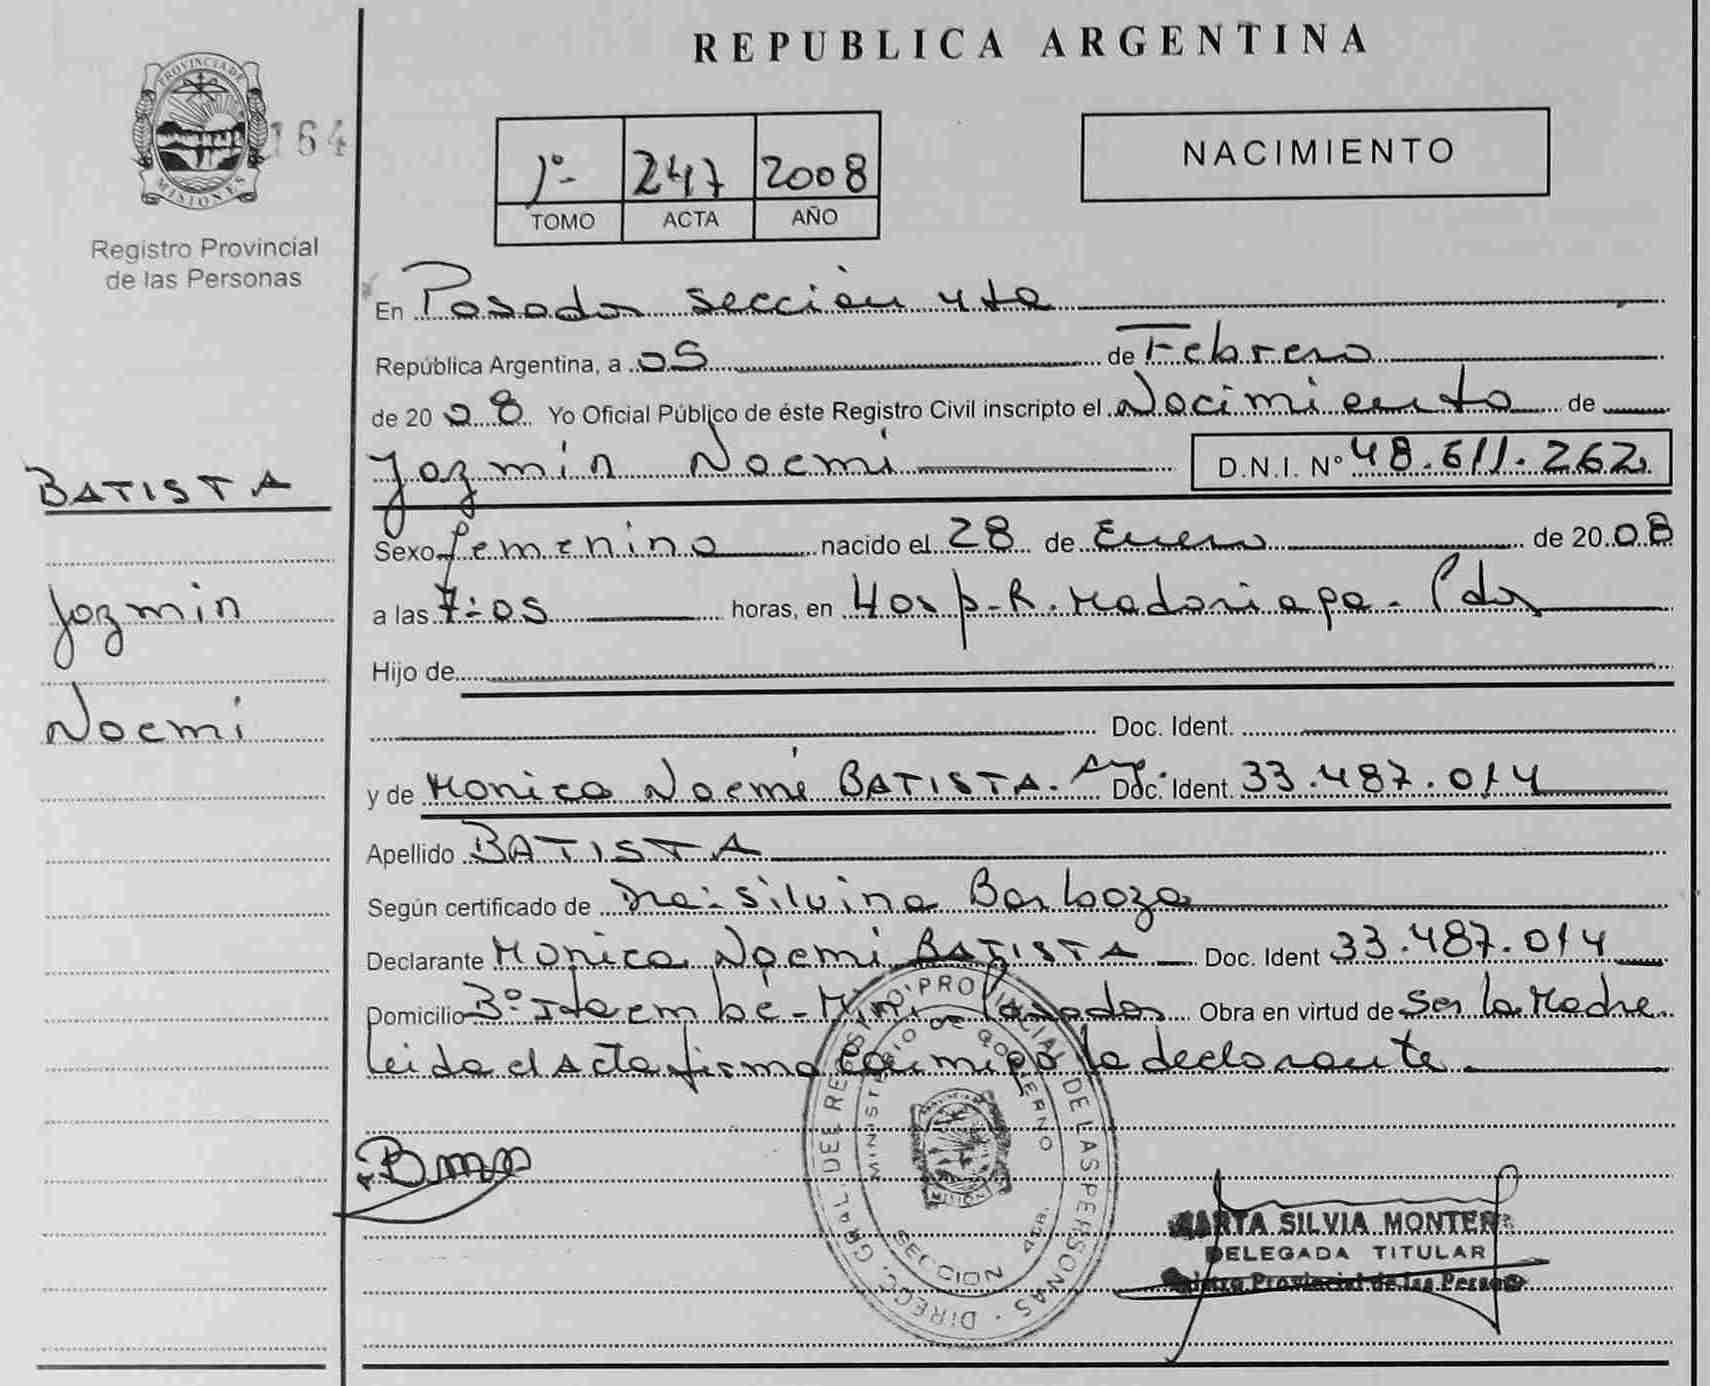 REPUBLICA ARGENTINA
PROVINCIA DE MISIONES
164
Registro Provincial
de las Personas
1º- 247 2008
TOMO ACTA AÑO
NACIMIENTO
En Posadas sección 4ta
República Argentina, a 05 de Febrero
de 2008 Yo Oficial Público de éste Registro Civil inscripto el Nacimiento de
Jazmin Noemi D.N.I. Nº 48.611.262
BATISTA
Jazmin
Noemi
Sexo femenino nacido el 28 de Enero de 2008
a las 7:05 horas, en Hosp. R. Madariaga - Pdas
Hijo de
Doc. Ident.
y de Monica Noemí BATISTA. Arg. Doc. Ident. 33.487.014
Apellido BATISTA
Según certificado de Dra: Silvina Barboza
Declarante Monica Noemi BATISTA Doc. Ident 33.487.014
Domicilio Bº Itaembé - Miní Posadas Obra en virtud de Ser la Madre
Leida el Acta firma conmigo la declarante
DIRECC. GRAL. DE REGISTRO PROVINCIAL DE LAS PERSONAS
MINISTERIO DE GOBIERNO
SECCION 4TA.
MISIONES
MARTA SILVIA MONTER
DELEGADA TITULAR
Registro Provincial de las Personas